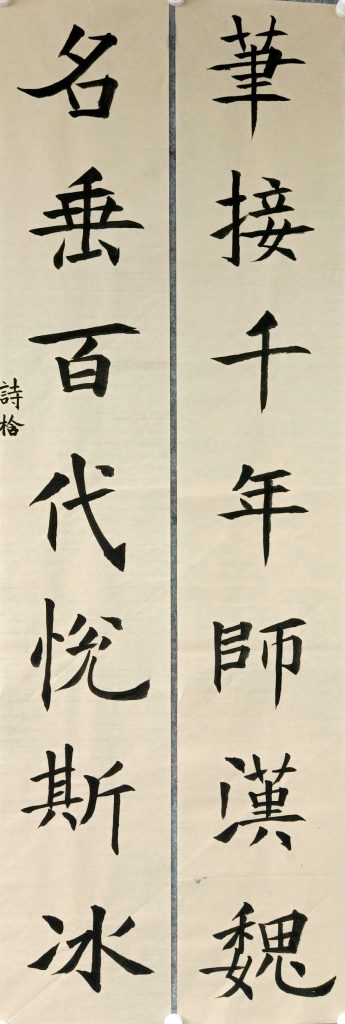 筆接千年師漢魏
名垂百代悅斯冰
詩拾